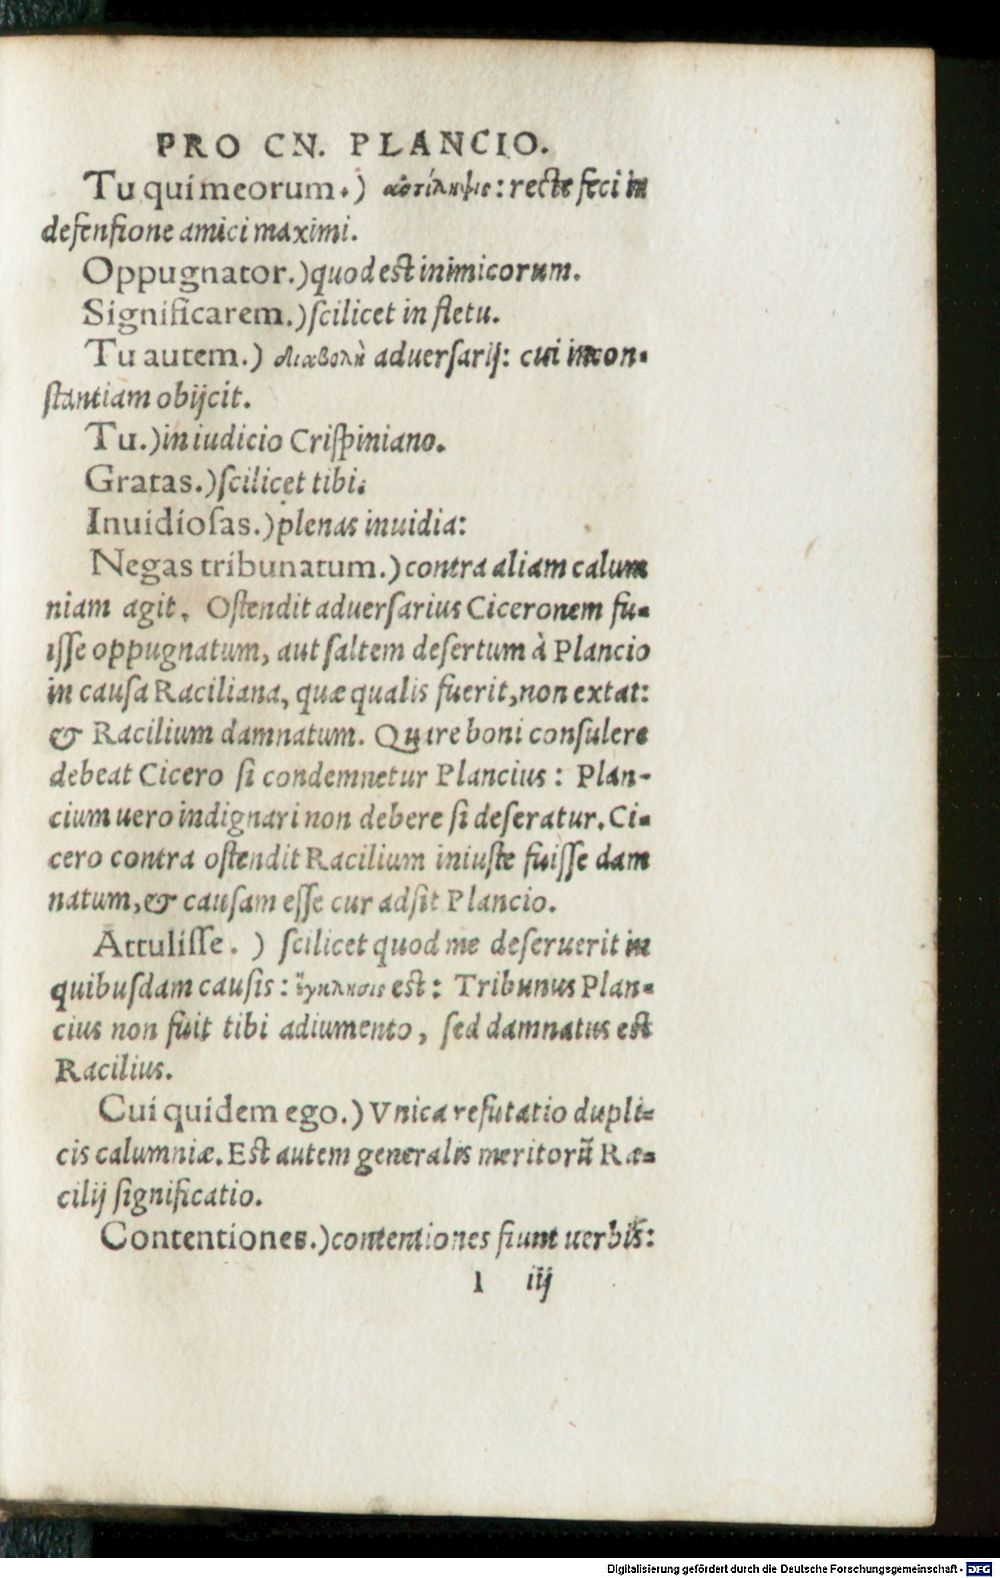 PRO CN. PLANCIO.
Tu qui meorum.) ἀντίληψις: recte feci in
defensione amici maximi.
Oppugnator.) quod est inimicorum.
Significarem.) scilicet in fletu.
Tu autem.) διαβολὴ aduersarij: cui incon-
stantiam obijcit.
Tu.) in iudicio Crispiniano.
Gratas.) scilicet tibi.
Inuidiosas.) plenas inuidia:
Negas tribunatum.) contra aliam calum
niam agit. Ostendit aduersarius Ciceronem fu-
isse oppugnatum, aut saltem desertum à Plancio
in causa Raciliana, quæ qualis fuerit, non extat:
& Racilium damnatum. Quare boni consulere
debeat Cicero si condemnetur Plancius: Plan-
cium uero indignari non debere si deseratur. Ci-
cero contra ostendit Racilium iniuste fuisse dam
natum, & causam esse cur adsit Plancio.
Attulisse.) scilicet quod me deseruerit in
quibusdam causis: ἔγκλησις est: Tribunus Plan-
cius non fuit tibi adiumento, sed damnatus est
Racilius.
Cui quidem ego.) Vnica refutatio dupli-
cis calumniæ. Est autem generalis meritorũ Ra-
cilij significatio.
Contentiones.) contentiones fiunt uerbis:
l iij
Digitalisierung gefördert durch die Deutsche Forschungsgemeinschaft - DFG